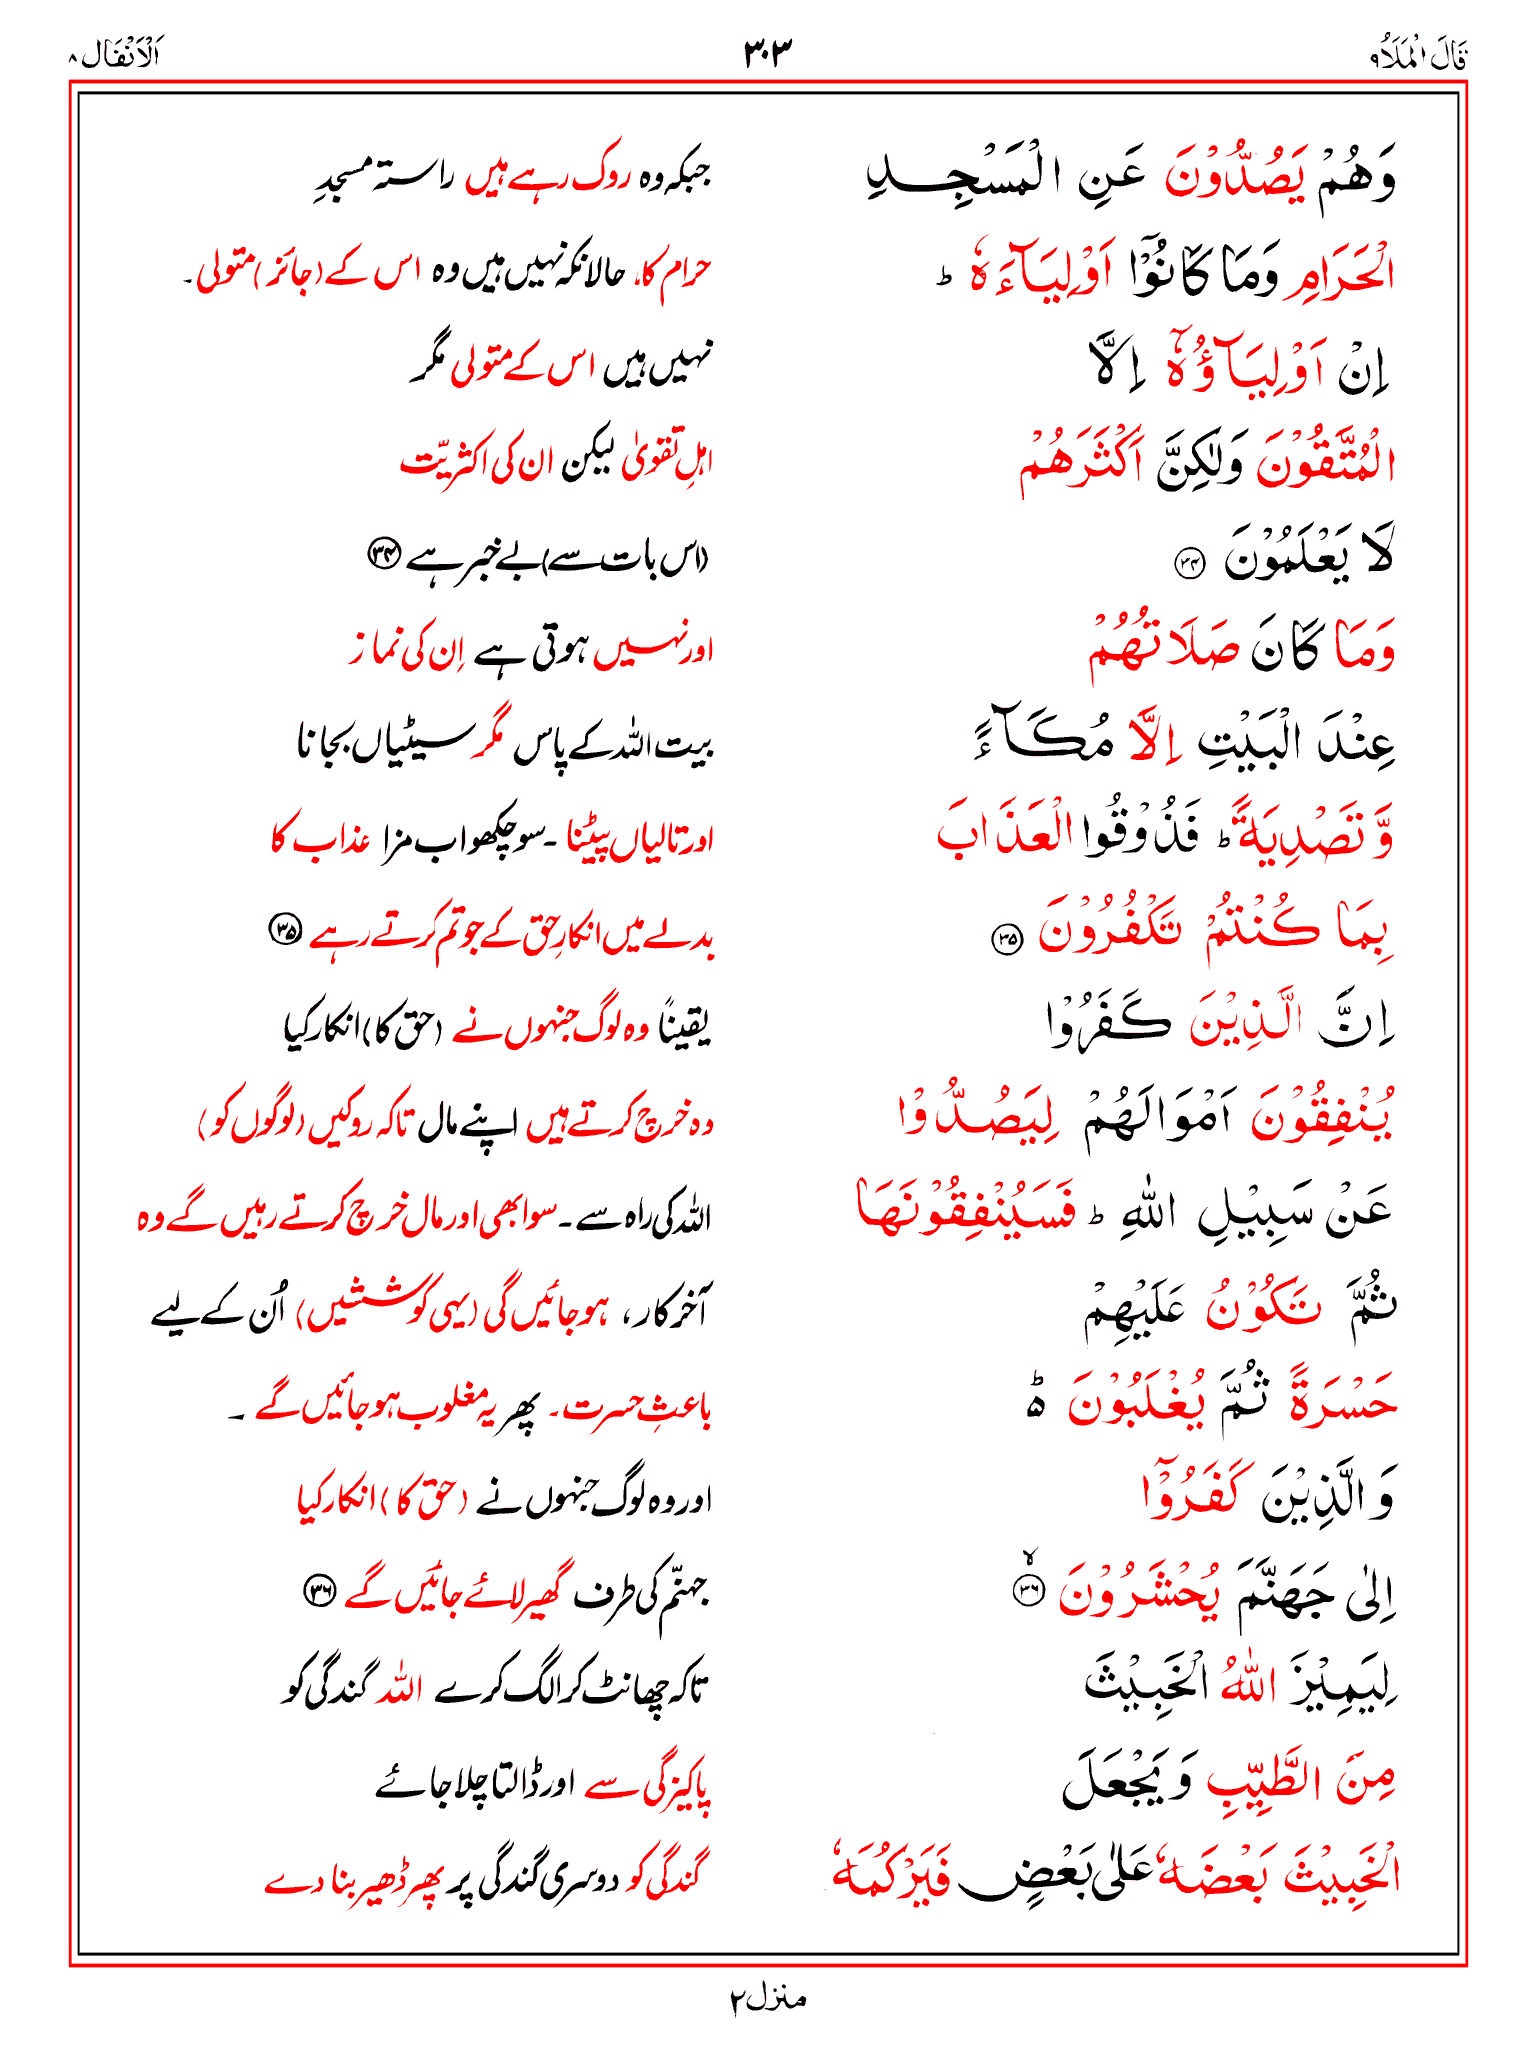 قَالَ الْمَلَاُ ۹ ۳۰۳ اَلْاَنْفَال ۸
وَهُمْ يَصُدُّوْنَ عَنِ الْمَسْجِدِ جبکہ وہ روک رہے ہیں راستہ مسجدِ
الْحَرَامِ وَمَا كَانُوْۤا اَوْلِيَآءَهٗ ؕ حرام کا، حالانکہ نہیں ہیں وہ اس کے (جائز) متولی۔
اِنْ اَوْلِيَآؤُهٗۤ اِلَّا نہیں ہیں اس کے متولی مگر
الْمُتَّقُوْنَ وَلٰكِنَّ اَكْثَرَهُمْ اہلِ تقویٰ لیکن ان کی اکثریّت
لَا يَعْلَمُوْنَ ۳۴ (اس بات سے) بے خبر ہے ۳۴
وَمَا كَانَ صَلَاتُهُمْ اور نہیں ہوتی ہے اِن کی نماز
عِنْدَ الْبَيْتِ اِلَّا مُكَآءً بیت اللہ کے پاس مگر سیٹیاں بجانا
وَّتَصْدِيَةً ؕ فَذُوْقُوا الْعَذَابَ اور تالیاں پیٹنا ۔ سو چکھو اب مزا عذاب کا
بِمَا كُنْتُمْ تَكْفُرُوْنَ ۳۵ بدلے میں انکارِ حق کے جو تم کرتے رہے ۳۵
اِنَّ الَّذِيْنَ كَفَرُوْا یقیناً وہ لوگ جنہوں نے (حق کا) انکار کیا
يُنْفِقُوْنَ اَمْوَالَهُمْ لِيَصُدُّوْا وہ خرچ کرتے ہیں اپنے مال تاکہ روکیں (لوگوں کو)
عَنْ سَبِيْلِ اللّٰهِ ؕ فَسَيُنْفِقُوْنَهَا اللہ کی راہ سے ۔ سو ابھی اور مال خرچ کرتے رہیں گے وہ
ثُمَّ تَكُوْنُ عَلَيْهِمْ آخر کار، ہو جائیں گی (یہی کوششیں) اُن کے لیے
حَسْرَةً ثُمَّ يُغْلَبُوْنَ ۵ؕ باعثِ حسرت۔ پھر یہ مغلوب ہو جائیں گے ۔
وَالَّذِيْنَ كَفَرُوْۤا اور وہ لوگ جنہوں نے (حق کا) انکار کیا
اِلٰى جَهَنَّمَ يُحْشَرُوْنَ ۙ۳۶ جہنّم کی طرف گھیر لائے جائیں گے ۳۶
لِيَمِيْزَ اللّٰهُ الْخَبِيْثَ تاکہ چھانٹ کر الگ کرے اللہ گندگی کو
مِنَ الطَّيِّبِ وَيَجْعَلَ پاکیزگی سے اور ڈالتا چلا جائے
الْخَبِيْثَ بَعْضَهٗ عَلٰى بَعْضٍ فَيَرْكُمَهٗ گندگی کو دوسری گندگی پر پھر ڈھیر بنا دے
منزل ۲